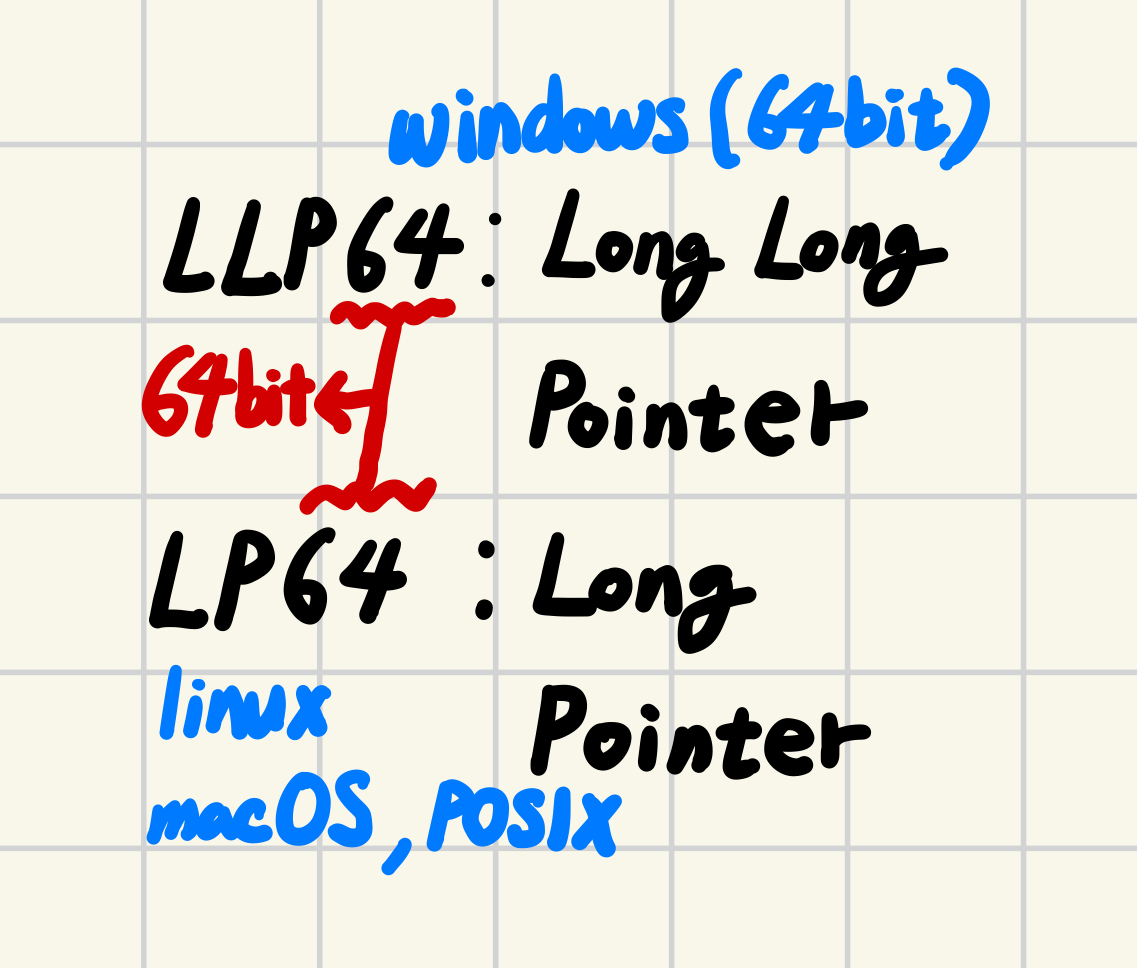 windows (64bit)
LLP64: Long Long
64bit← Pointer
LP64 : Long
linux Pointer
macOS, POSIX